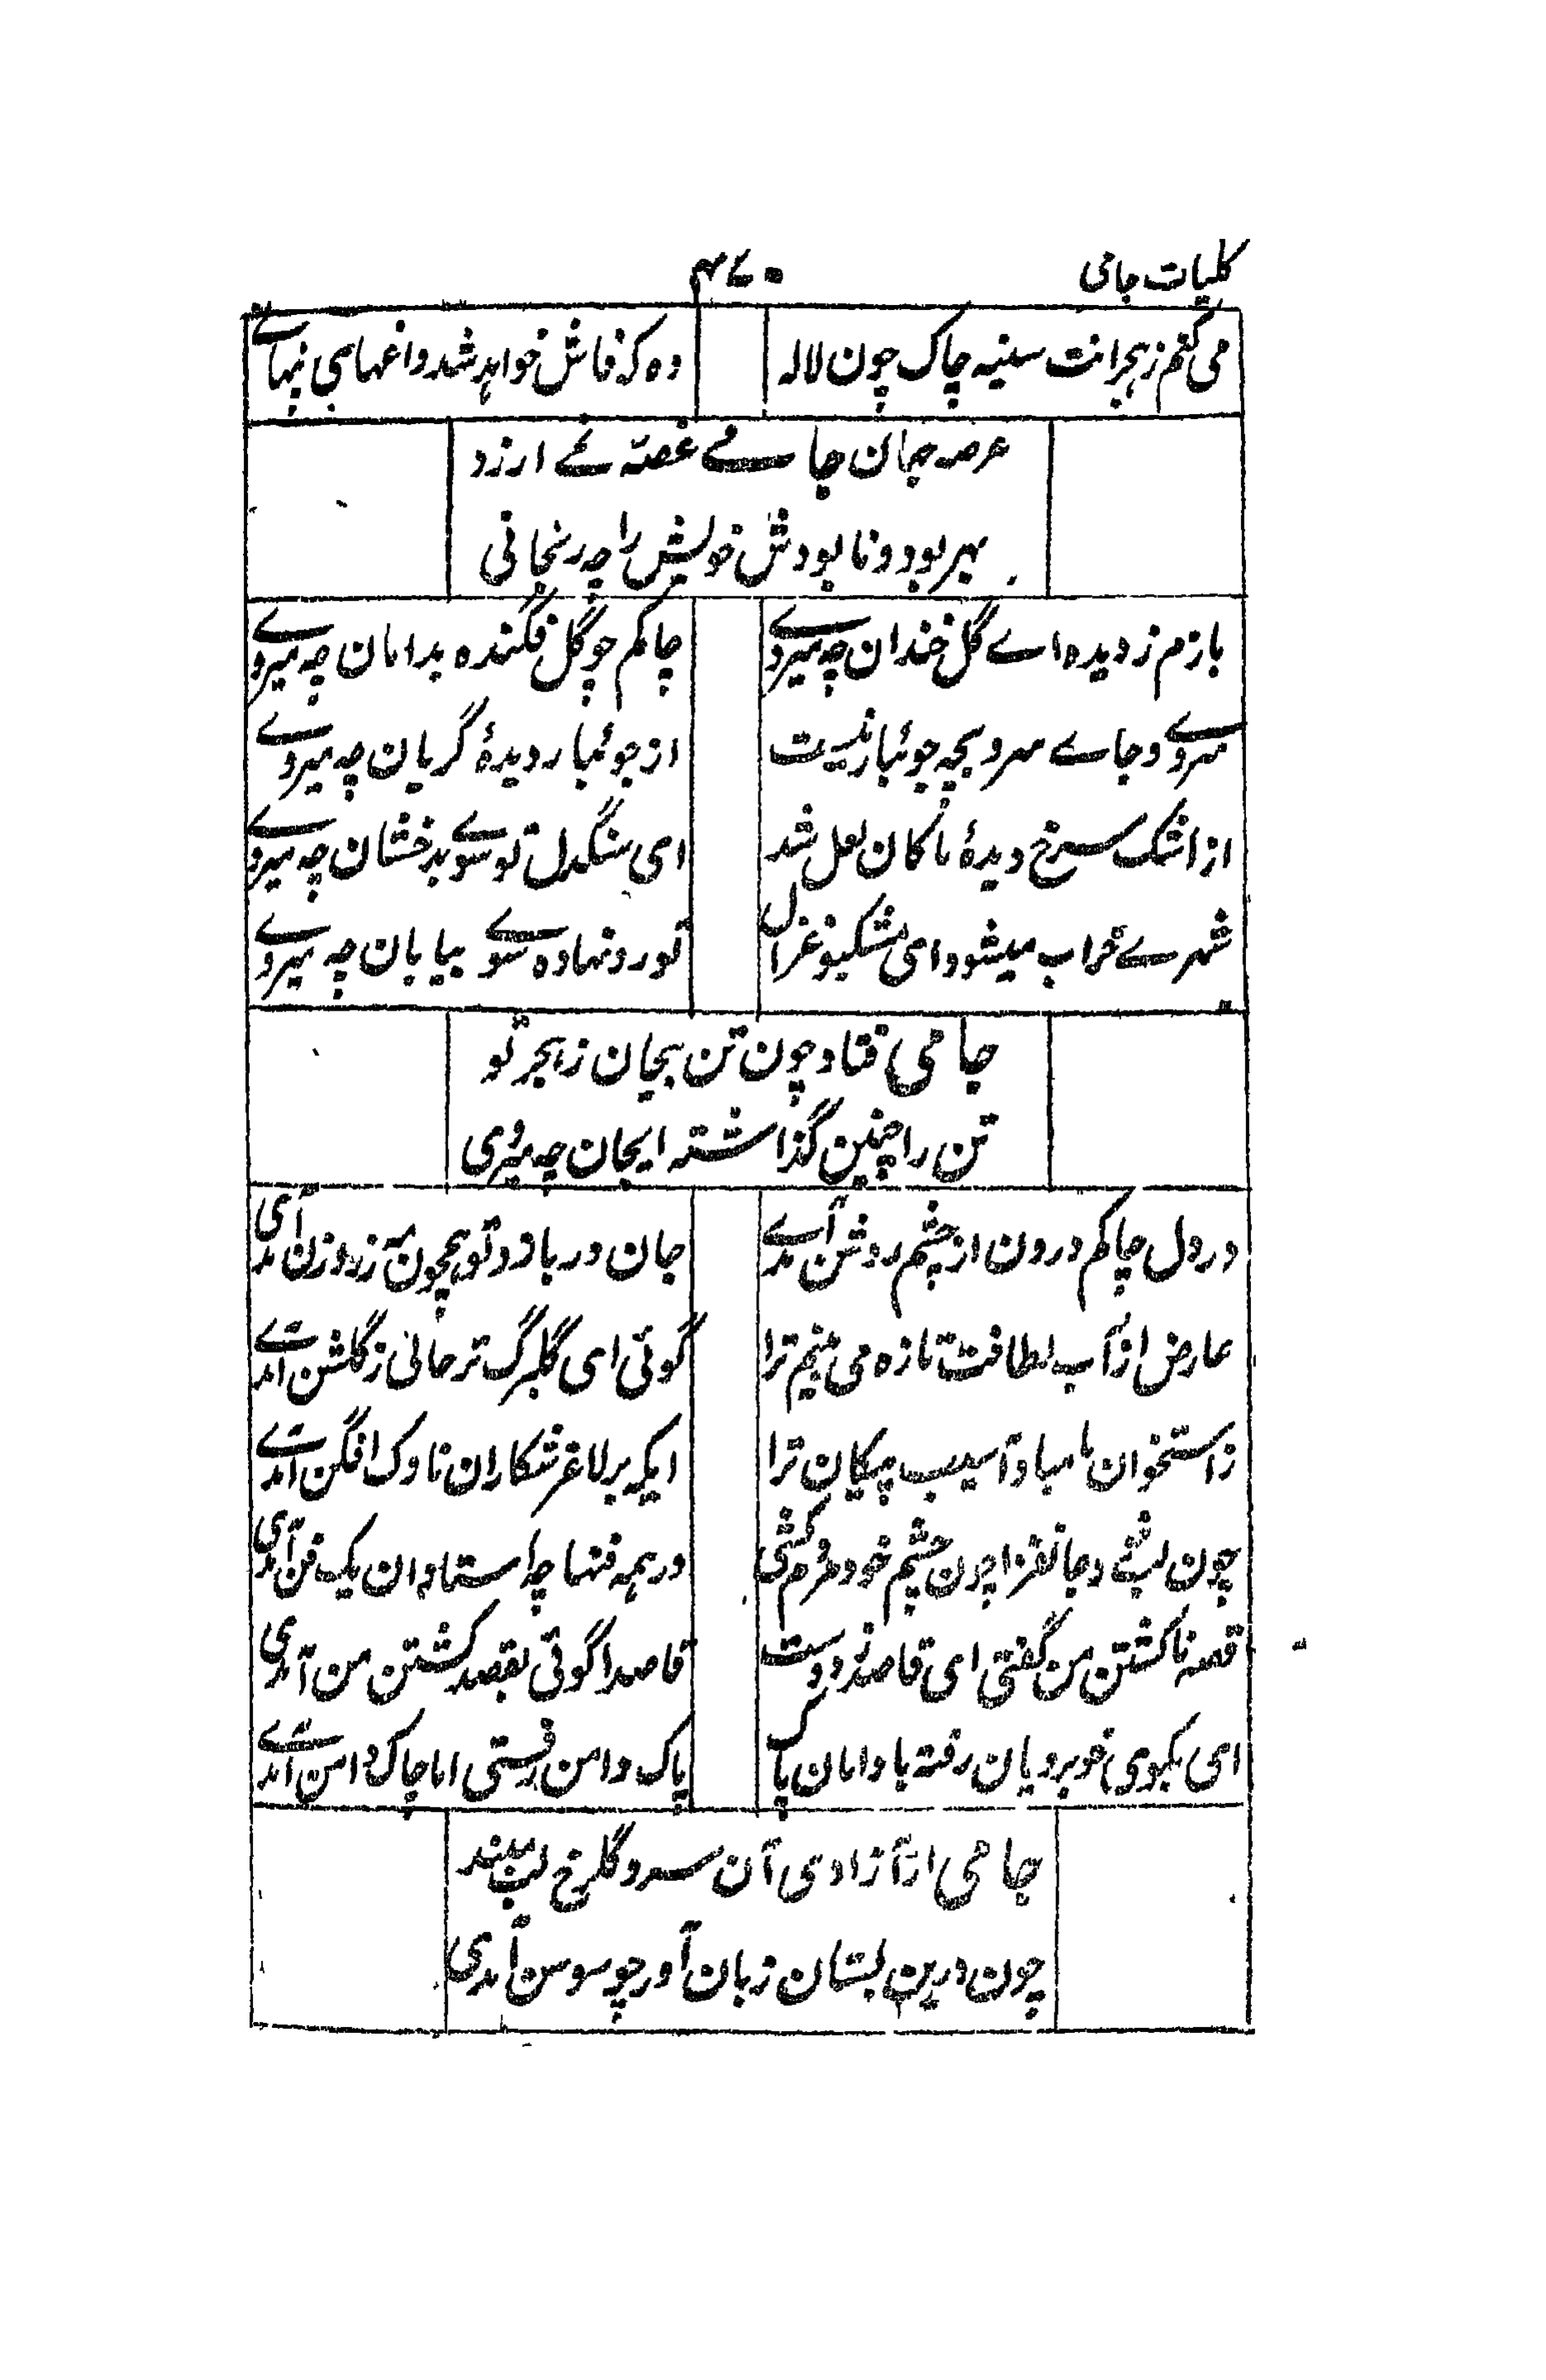 کلیات جامی
۴۷۰
می کنم ز ہجرانت سینہ چاک چون لالہ
وہ کہ فاش خواہد شد داغہای پنہانے
عرصہ جہان جامے غصہ نمے ارزد
بہر بود و نابودش خویش را چہ رنجانی
بازم ز دیدہ اے گل خندان چہ میروے
چاکم چو گل فگندہ بدامان چہ میروے
سروے و جاے سرو بجز جوئبار نیست
از جوئبار دیدۂ گریان چہ میروے
از اشک سرخ دیدۂ ما کان لعل شد
ای سنگدل تو سوے بدخشان چہ میروے
شہرے خراب میشود ای مشکبو غزال
تو رو نہادہ سوے بیابان چہ میروے
جامی فتاد چون تن بیجان ز ہجر تو
تن را چنین گذاشتہ ایجان چہ میروی
در دل چاکم درون از چشم روشن آمدے
جان در باز و تو ہمچون مہ ز روزن آمدی
عارض از آب لطافت تازہ می بینم ترا
گوئی ای گلبرگ تر حالی ز گلشن آمدے
ز استخوان ما مباد آسیب پیکان ترا
ایکہ بر لاغر شکاران ناوک افگن آمدے
چون لب جانفزا چون چشم خود مردم کشی
در ہمہ فنہا چہ استاد ان یک فن آمدی
قصہ ناکشتن من گفتی ای قاصد ز دوست
قاصدا گوئی بقصد کشتن من آمدی
ای بکوی خوبرویان رفتہ با دامان پاک
پاک دامن رفتی اما چاک دامن آمدے
جامی از آزادی آن سرو گلرخ لب مبند
چون درین بستان زبان آور چو سوسن آمدی